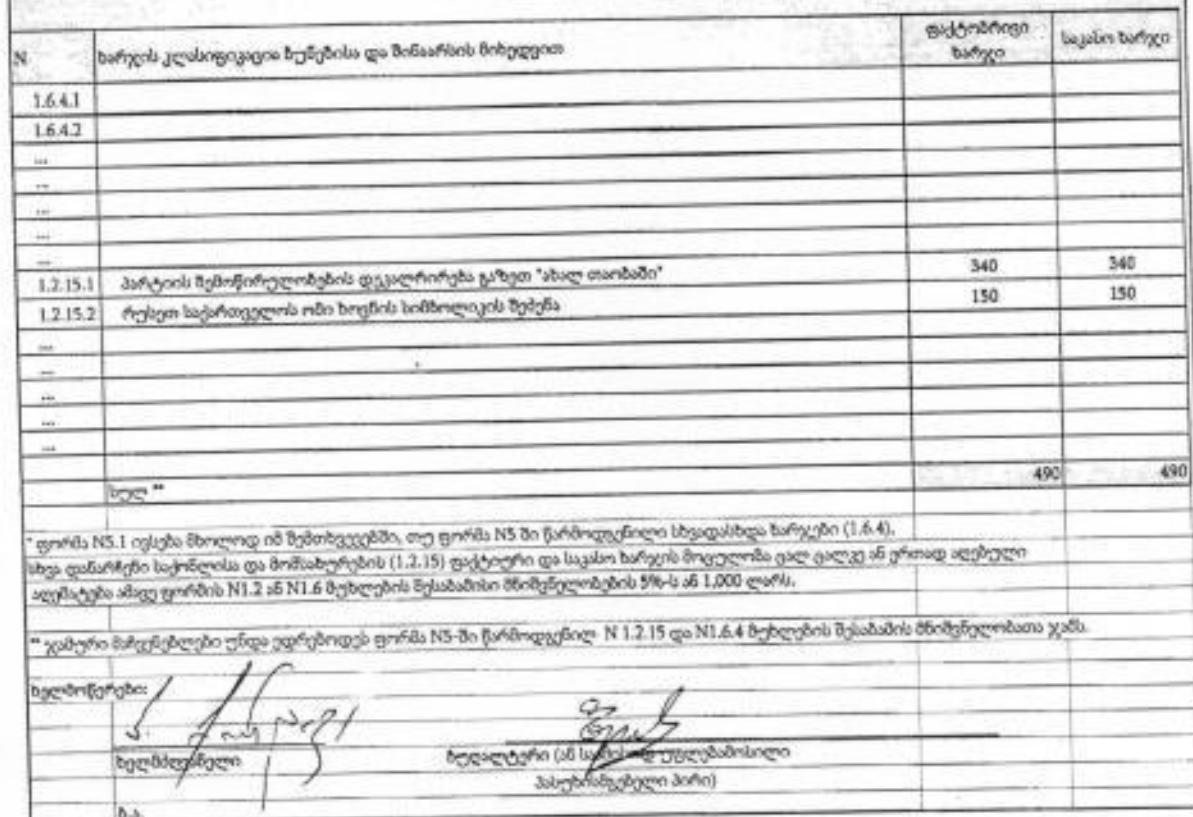 N ხარჯის კლასიფიკაცია ბუნებისა და შინაარსის მიხედვით ფაქტობრივი ხარჯი საკასო ხარჯი
1.6.4.1
1.6.4.2
...
...
...
...
...
1.2.15.1 პარტიის შემოწირულობების დეკალრირება გაზეთ "ახალ თაობაში" 340 340
1.2.15.2 რუსეთ საქართველოს ომი ხოვნის სიმბოლიკის შეძენა 150 150
...
...
...
...
...
490 490
სულ **
* ფორმა N5.1 ივსება მხოლოდ იმ შემთხვევებში, თუ ფორმა N5 ში წარმოდგენილი სხვადასხდა ხარჯები (1.6.4),
სხვა დანარჩენი საქონლისა და მომსახურების (1.2.15) ფაქტიური და საკასო ხარჯის მოცულობა ცალ ცალკე ან ერთად აღებული
აღემატება ამავე ფორმის N1.2 ან N1.6 მუხლების შესაბამისი მნიშვნელობების 5%-ს ან 1,000 ლარს.
** ჯამური მაჩვენებლები უნდა უდრებოდეს ფორმა N5-ში წარმოდგენილ N 1.2.15 და N1.6.4 მუხლების შესაბამის მნიშვნელობათა ჯამს.
ხელმოწერები:
ხელმძღვანელი ბუღალტერი (ან საამისოდ უფლებამოსილი
პასუხისმგებელი პირი)